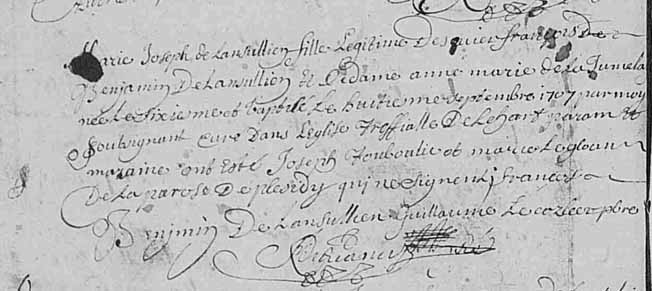 Marie Joseph de Lansullien fille Legitime Desquier francois De
Benjamin De Lansullien Et De dame anne marie de La Jumela
née Le sixieme et baptisée Le huitienne septembre 1707 par moy
soubsignant Curé Dans Leglise De param Et
maraine ont Esté Joseph et marie Legloan
De La paroise De plesidy qui ne signent francois
Benjamin De Lansullien Guillaume Le pbre